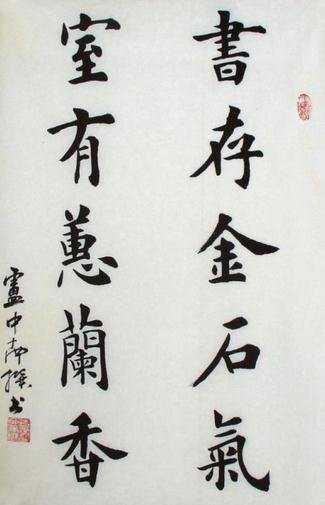 書存金石氣
室有蕙蘭香
盧中南撰书